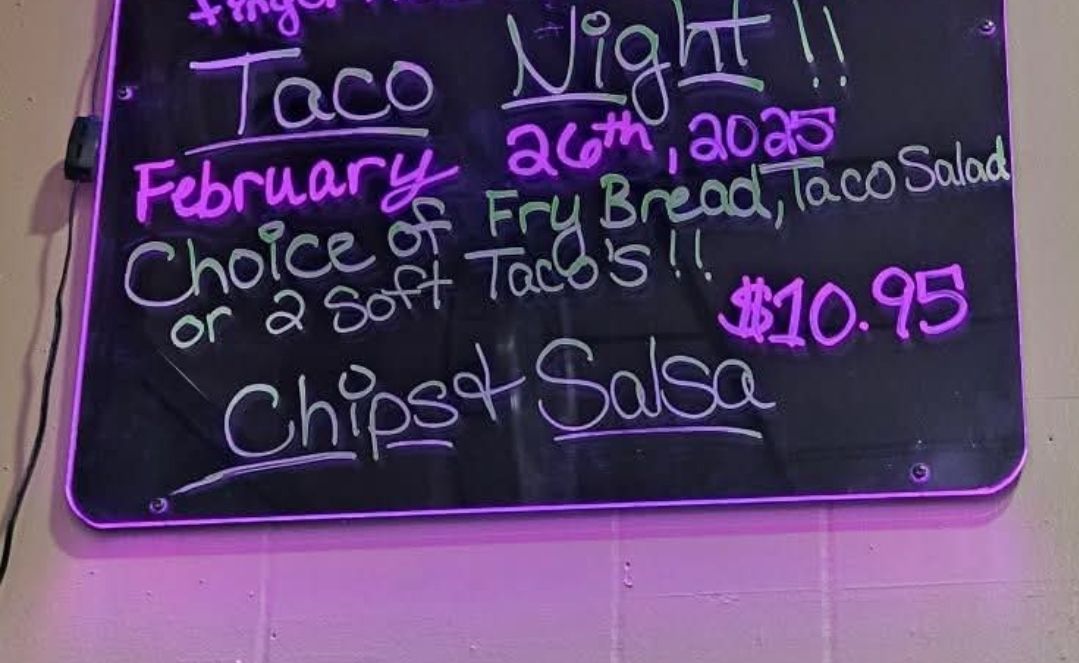 Taco Night !!
February 26th, 2025
Choice of Fry Bread, Taco Salad
or 2 Soft Taco's !!
$10.95
Chips & Salsa